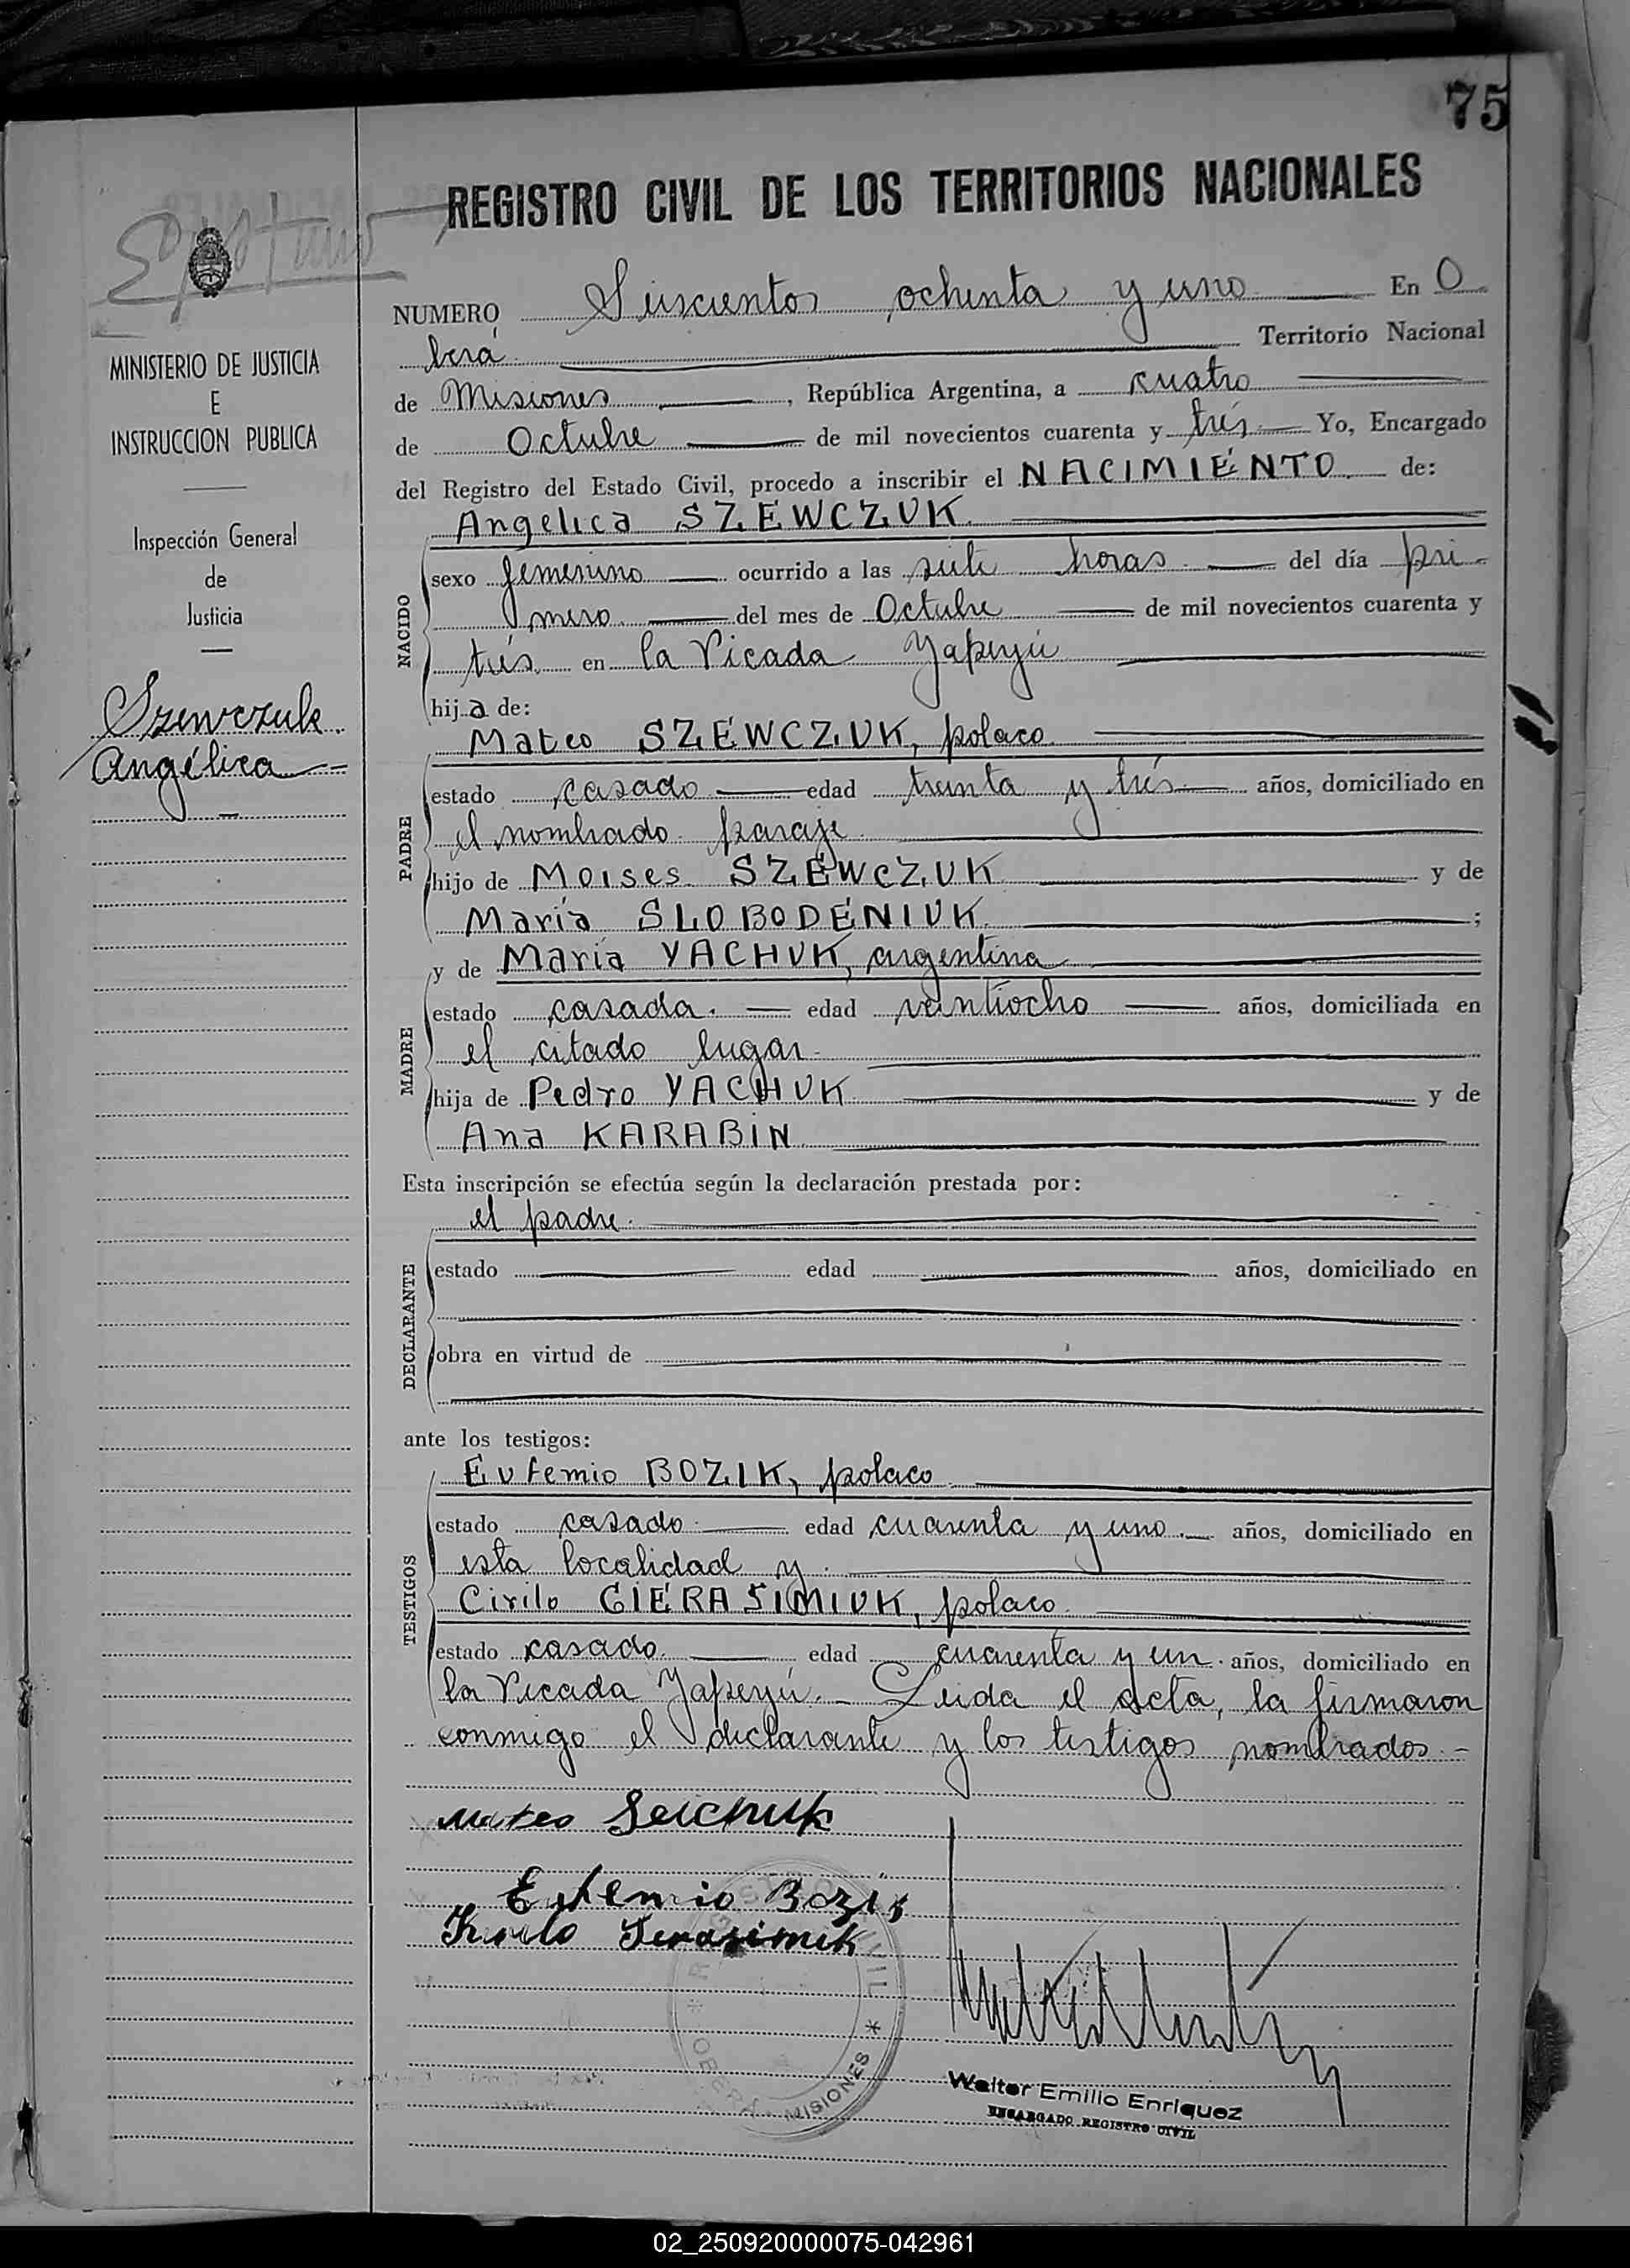 75
REGISTRO CIVIL DE LOS TERRITORIOS NACIONALES
MINISTERIO DE JUSTICIA
E
INSTRUCCION PUBLICA
Inspección General
de
Justicia
Szewczuk
Angélica
NUMERO Seiscientos ochenta y uno En O
berá Territorio Nacional
de Misiones, República Argentina, a cuatro
de Octubre de mil novecientos cuarenta y trés Yo, Encargado
del Registro del Estado Civil, procedo a inscribir el NACIMIENTO de:
Angelica SZEWCZUK
NACIDO
sexo femenino ocurrido a las siete horas del día pri-
mero del mes de Octubre de mil novecientos cuarenta y
trés en la Picada Yapeyú
hija de:
PADRE
Mateo SZEWCZUK, polaco
estado casado edad treinta y trés años, domiciliado en
el nombrado paraje
hijo de Moises SZEWCZUK y de
María SLOBODENIUK ;
MADRE
y de María YACHUK, argentina
estado casada. edad veintiocho años, domiciliada en
el citado lugar
hija de Pedro YACHUK y de
Ana KARABIN
Esta inscripción se efectúa según la declaración prestada por:
el padre.
DECLARANTE
estado edad años, domiciliado en
obra en virtud de
ante los testigos:
TESTIGOS
Eufemio BOZIK, polaco
estado casado edad cuarenta y uno. años, domiciliado en
esta localidad y
Cirilo GIERASIMIUK, polaco
estado casado. edad cuarenta y un. años, domiciliado en
la Picada Yapeyú. - Leida el acta, la firmaron
conmigo el declarante y los testigos nombrados.-
Mateo Seichuk
Eufemio Bozik
Kirilo Gerasimuk
REGISTRO CIVIL * OBERÁ - MISIONES *
Walter Emilio Enriquez
ENCARGADO REGISTRO CIVIL
02_250920000075-042961